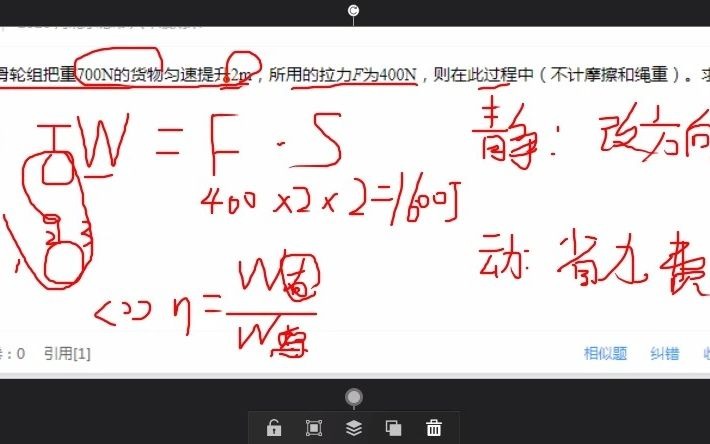 滑轮组把重700N的货物匀速提升2m，所用的拉力F为400N，则在此过程中（不计摩擦和绳重）。求
W = F · S
静: 改方向
400 ×2 × 2 = 1600J
2 3
1
动: 省力 费
<2> η = W有 / W总
: 0 引用[1] 相似题 纠错